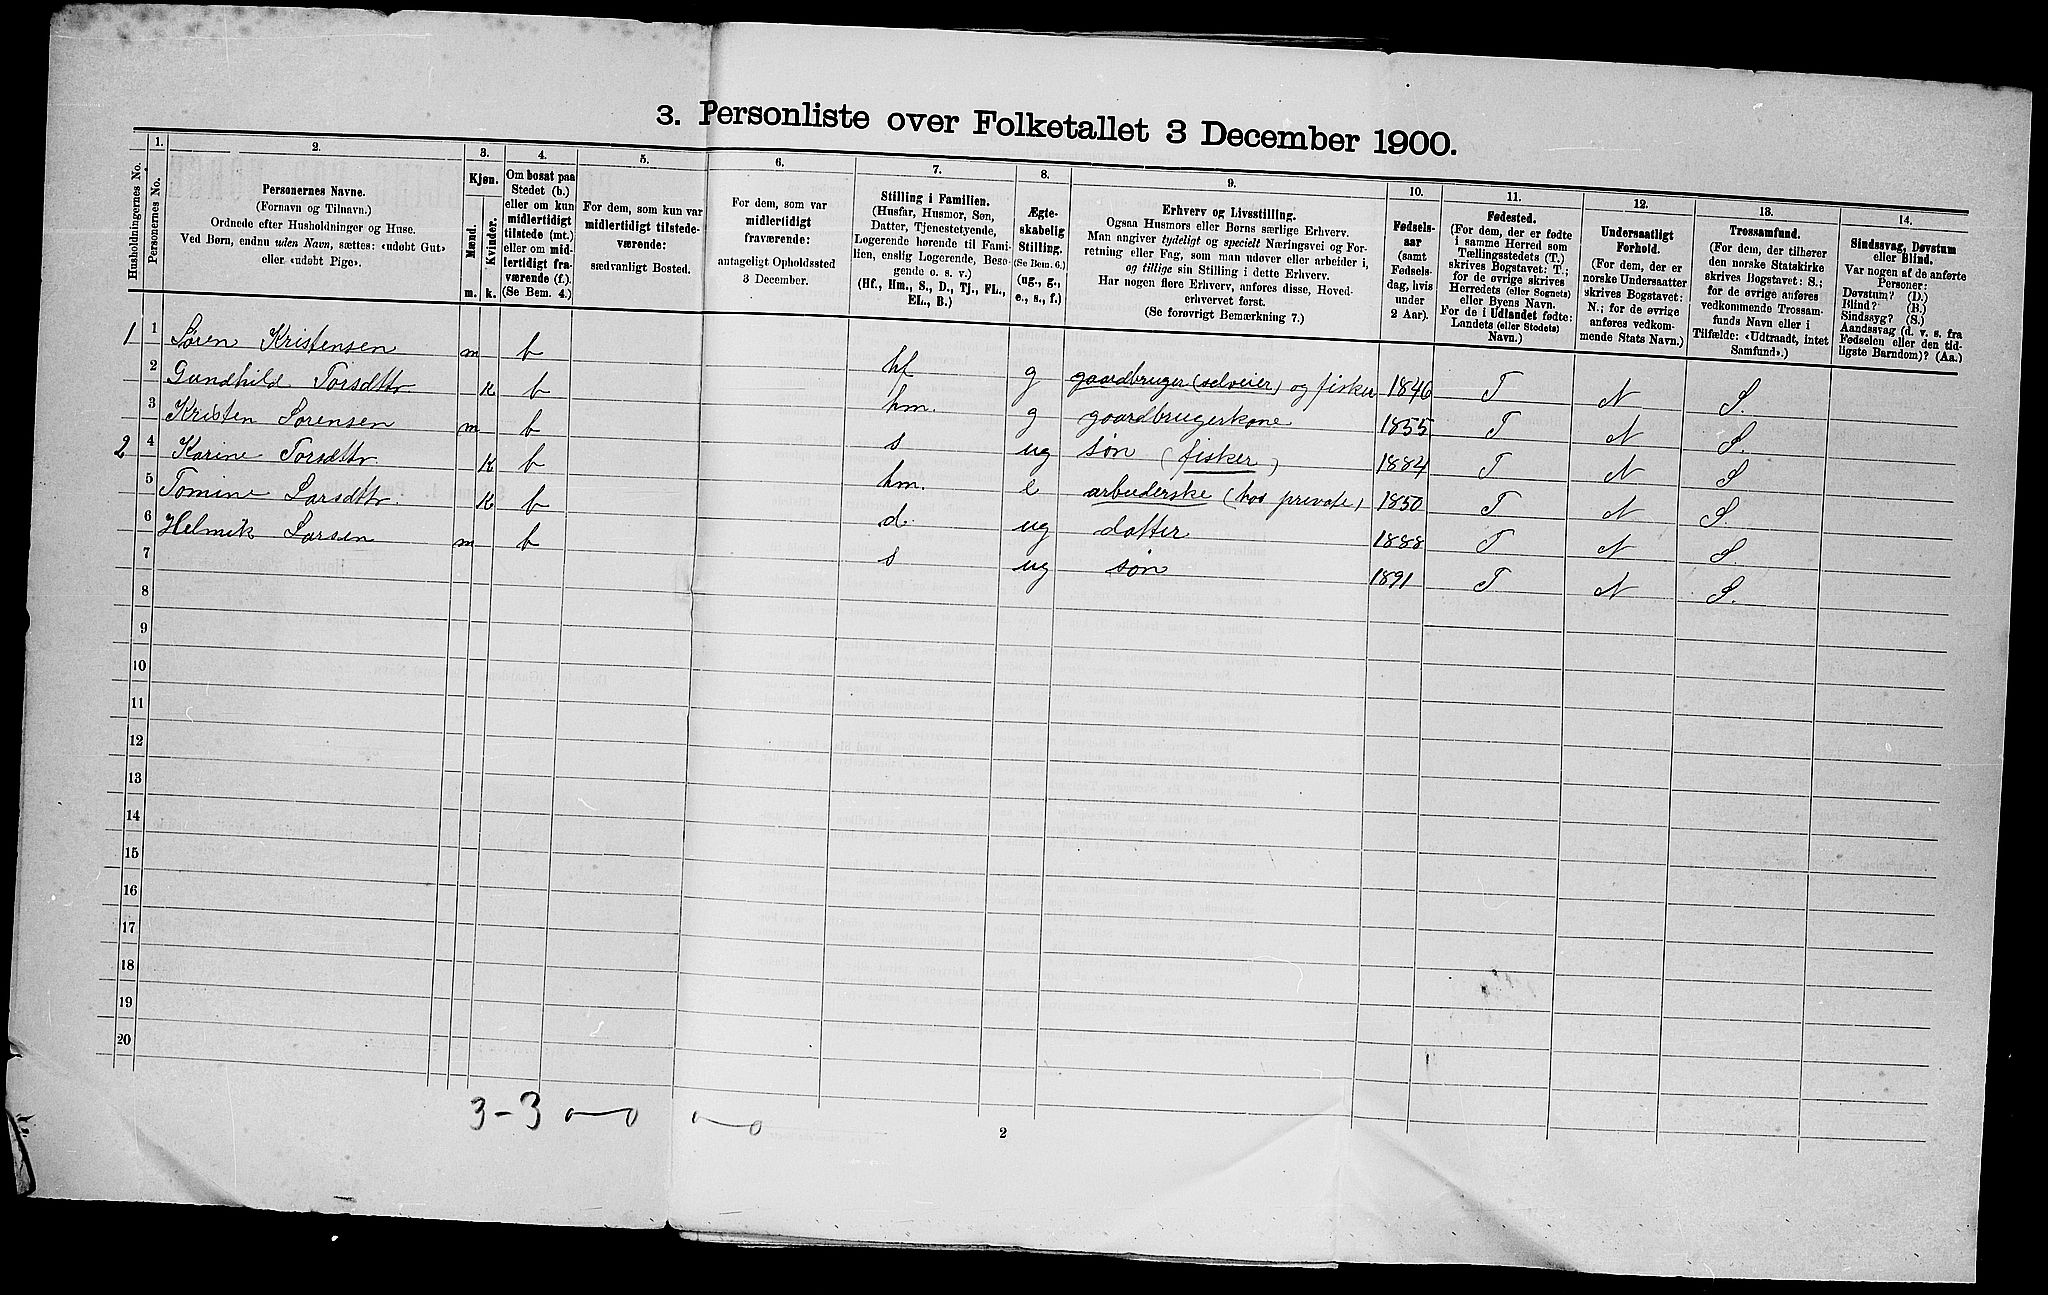 3. Personliste over Folketallet 3 December 1900.
Husholdningernes No.
1.
Personernes No.
2.
Personernes Navne.
(Fornavn og Tilnavn.)
Ordnede efter Husholdninger og Huse.
Ved Børn, endnu uden Navn, sættes: «udøbt Gut»
eller «udøbt Pige».
3.
Kjøn.
Mænd.
Kvinder.
m. k.
4.
Om bosat paa
Stedet (b.)
eller om kun
midlertidigt
tilstede (mt.)
eller om mid-
lertidigt fra-
værende (f.).
(Se Bem. 4.)
5.
For dem, som kun var
midlertidigt tilstede-
værende:
sædvanligt Bosted.
6.
For dem, som var
midlertidigt
fraværende:
antageligt Opholdssted
3 December.
7.
Stilling i Familien.
(Husfar, Husmor, Søn,
Datter, Tjenestetyende,
Logerende hørende til Fami-
lien, enslig Logerende, Besø-
gende o. s. v.)
(Hf., Hm., S., D., Tj., FL.,
EL., B.)
8.
Ægte-
skabelig
Stilling.
(Se Bem. 6.)
(ug., g.,
e., s., f.)
9.
Erhverv og Livsstilling.
Ogsaa Husmors eller Børns særlige Erhverv.
Man angiver tydeligt og specielt Næringsvei og For-
retning eller Fag, som man udøver eller arbeider i,
og tillige sin Stilling i dette Erhverv.
Har nogen flere Erhverv, anføres disse, Hoved-
erhvervet først.
(Se forøvrigt Bemærkning 7.)
10.
Fødsels-
aar
(samt
Fødsels-
dag, hvis
under
2 Aar).
11.
Fødested.
(For dem, der er fødte
i samme Herred som
Tællingsstedets (T.)
skrives Bogstavet: T.;
for de øvrige skrives
Herredets (eller Sognets)
eller Byens Navn.
For de i Udlandet fødte:
Landets (eller Stedets)
Navn.)
12.
Undersaatligt
Forhold.
(For dem, der er
norske Undersaatter
skrives Bogstavet:
N.; for de øvrige
anføres vedkom-
mende Stats Navn.)
13.
Trossamfund.
(For dem, der tilhører
den norske Statskirke
skrives Bogstavet: S.;
for de øvrige anføres
vedkommende Trossam-
funds Navn eller i
Tilfælde: «Udtraadt, intet
Samfund».)
14.
Sindssvag, Døvstum
eller Blind.
Var nogen af de anførte
Personer:
Døvstum? (D.)
Blind? (B.)
Sindssyg? (S.)
Aandssvag (d. v. s. fra
Fødselen eller den tid-
ligste Barndom)? (Aa.)
1 1 Søren Kristensen m b hf g gaardbruger (selveier) og fisker 1846 T N S.
2 Gundhild Torsdttr k b hm. g gaardbrugerkone 1855 T N S.
3 Kristen Sørensen m b s ug søn (fisker) 1884 T N S
2 4 Karine Torsdttr. k b hm. e arbeiderske (hos private) 1850 T N S.
5 Tomine Larsdttr k b d. ug datter 1888 T N S.
6 Helmik Larsen m b s ug søn 1891 T N S.
7
8
9
10
11
12
13
14
15
16
17
18
19
20
3-3 0-0 0-0
2